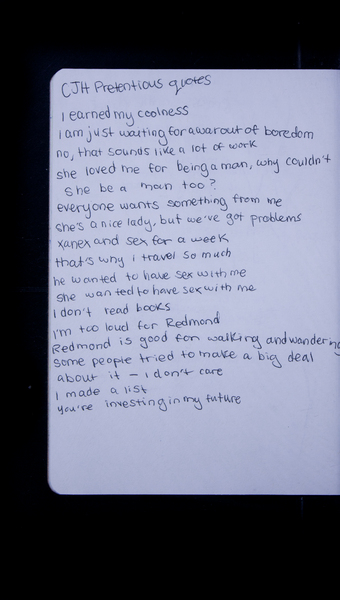 CJH Pretentious quotes
I earned my coolness
I am just waiting for a war out of boredom
no, that sounds like a lot of work
she loved me for being a man, why couldn't
she be a man too?
everyone wants something from me
she's a nice lady, but we've got problems
xanex and sex for a week
that's why i travel so much
he wanted to have sex with me
she wanted to have sex with me
I don't read books
I'm too loud for Redmond
Redmond is good for walking and wandering
some people tried to make a big deal
about it – I don't care
I made a list
you're investing in my future